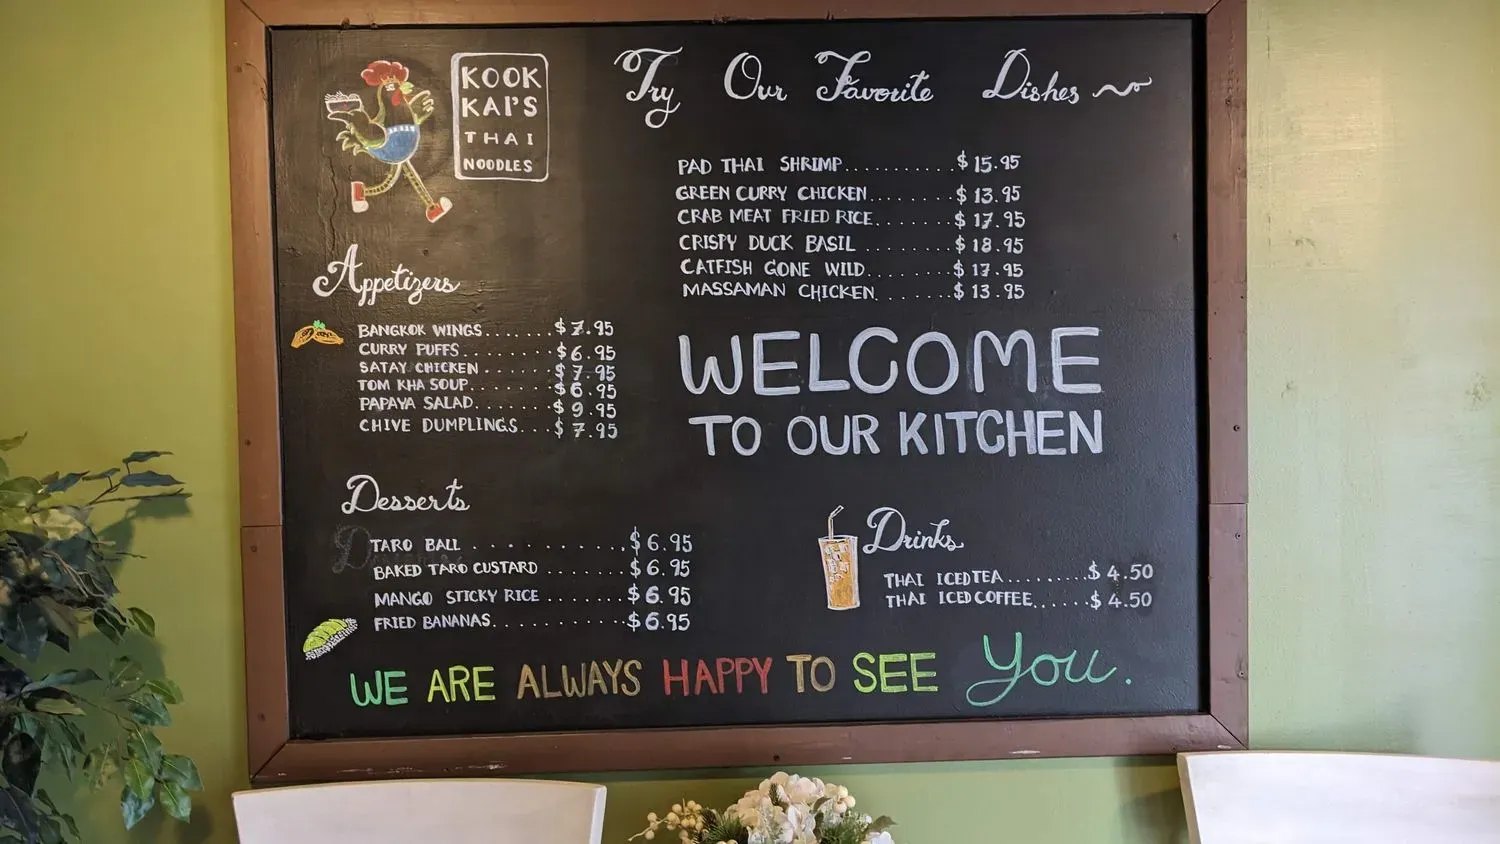 KOOK
KAI'S
THAI
NOODLES
Try Our Favorite Dishes
PAD THAI SHRIMP..........$ 15.95
GREEN CURRY CHICKEN........$ 13.95
CRAB MEAT FRIED RICE........$ 17.95
CRISPY DUCK BASIL ........$ 18.95
CATFISH GONE WILD........$ 17.95
MASSAMAN CHICKEN.......$ 13.95
Appetizers
BANGKOK WINGS......$ 7.95
CURRY PUFFS........$ 6.95
SATAY CHICKEN......$ 7.95
TOM KHA SOUP.......$ 6.95
PAPAYA SALAD.......$ 9.95
CHIVE DUMPLINGS...$ 7.95
WELCOME
TO OUR KITCHEN
Desserts
TARO BALL ............$ 6.95
BAKED TARO CUSTARD .......$ 6.95
MANGO STICKY RICE .......$ 6.95
FRIED BANANAS............$ 6.95
Drinks
THAI ICED TEA........$ 4.50
THAI ICED COFFEE......$ 4.50
WE ARE ALWAYS HAPPY TO SEE You.